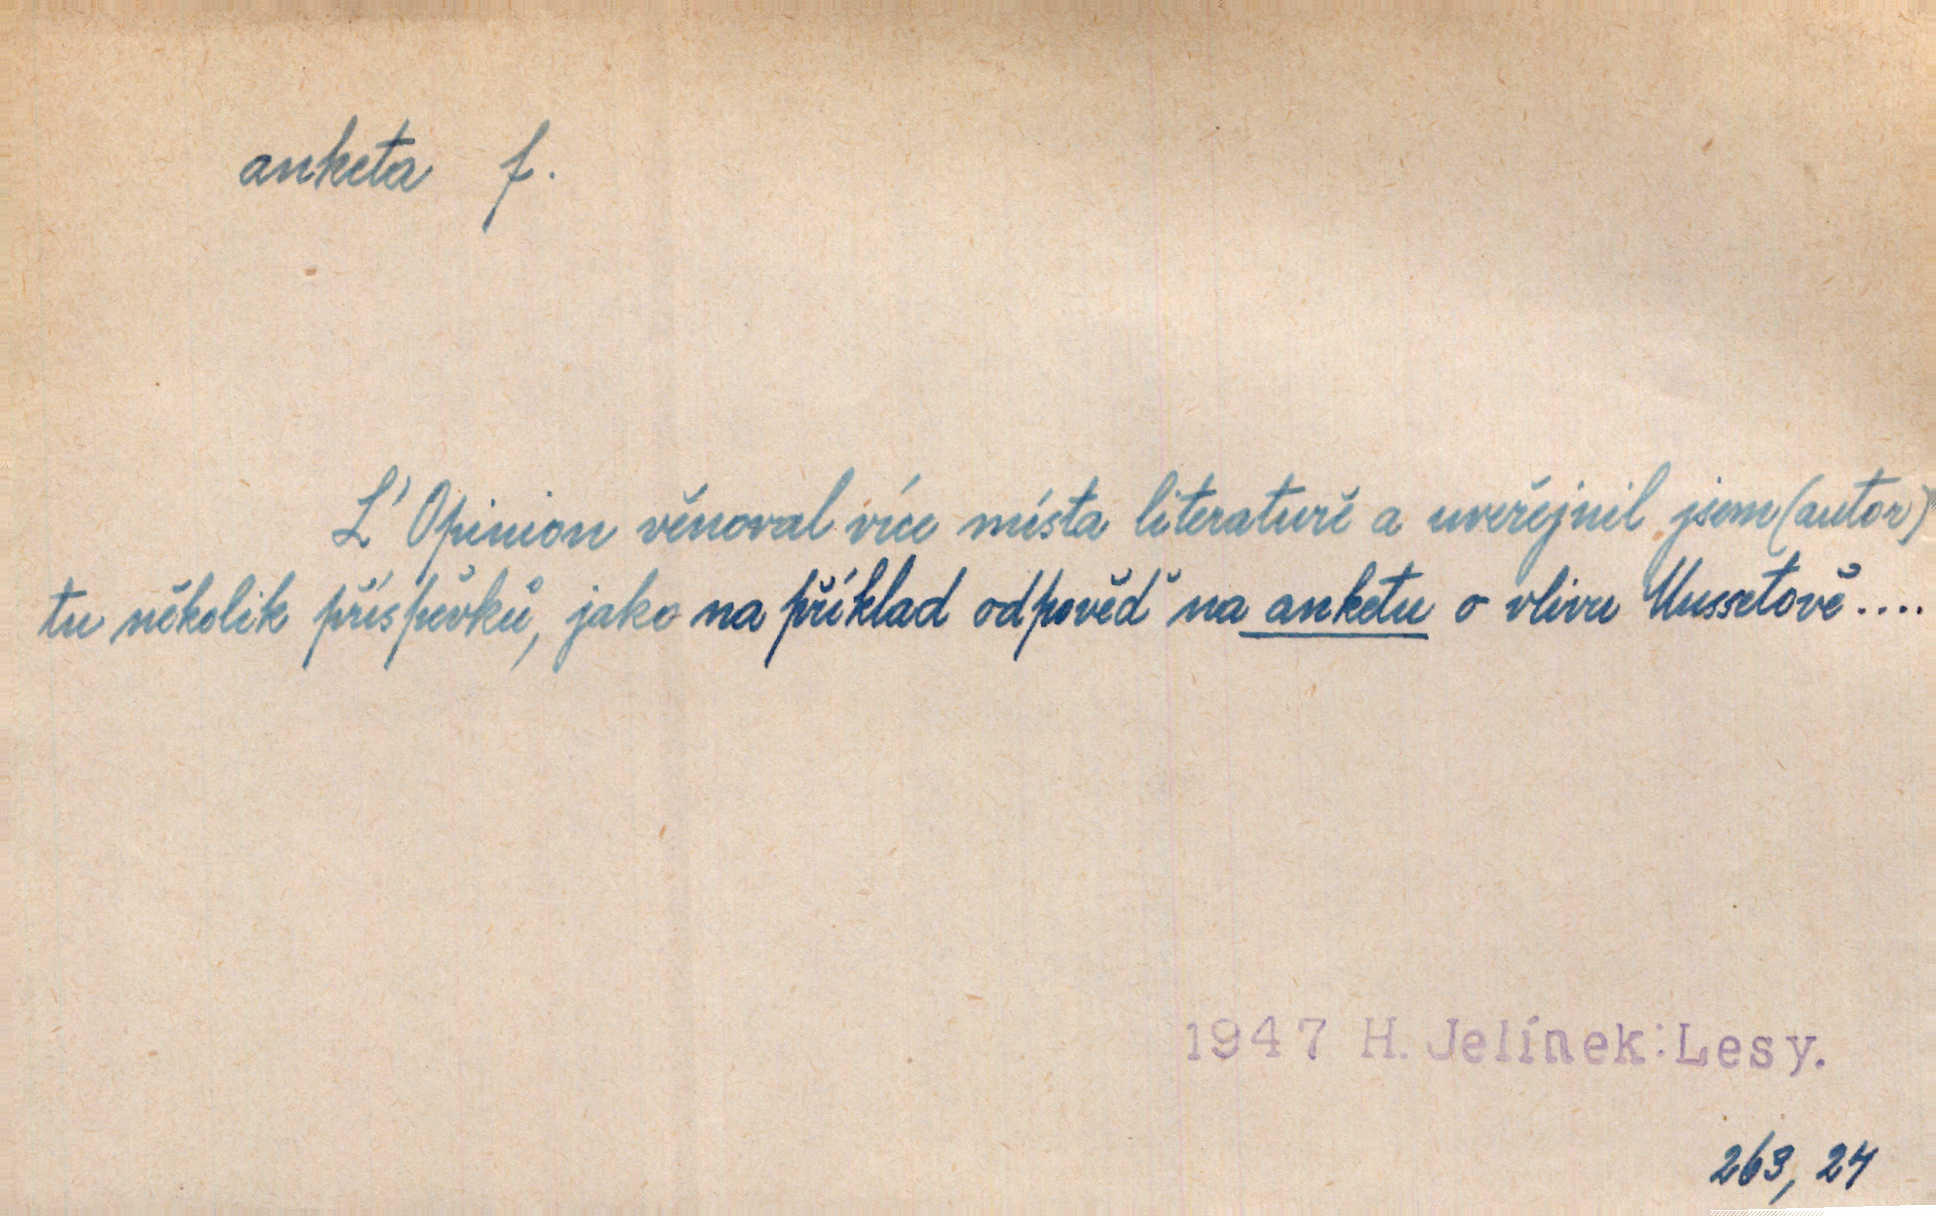 anketa f.
L'Opinion věnoval více místa literatuře a uveřejnil jsem (autor)
tu několik příspěvků, jako na příklad odpověď na anketu o vlivu Mussetově....
1947 H. Jelínek: Lesy.
263, 24